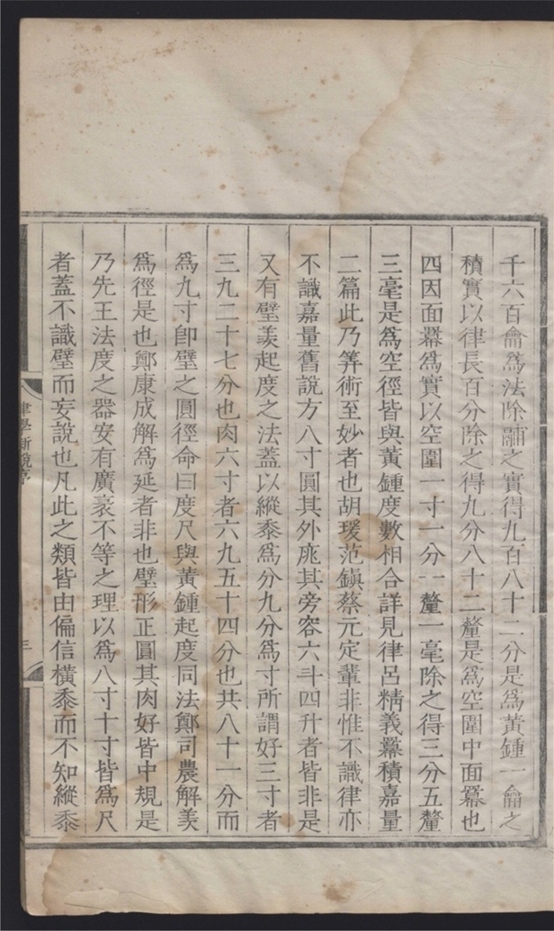 千六百龠爲法除鬴之實得九百八十二分是爲黃鍾一龠之
積實以律長百分除之得九分八十二釐是爲空圍中面羃也
四因面羃爲實以空圍一寸一分一釐一毫除之得三分五釐
三毫是爲空徑皆與黃鍾度數相合詳見律呂精義羃積嘉量
二篇此乃筭術至妙者也胡瑗范鎮蔡元定輩非惟不識律亦
不識嘉量舊說方八寸圓其外庣其旁容六斗四升者皆非是
又有璧羨起度之法蓋以縱黍爲分九分爲寸所謂好三寸者
三九二十七分也肉六寸者六九五十四分也共八十一分而
爲九寸卽璧之圓徑命曰度尺與黃鍾起度同法鄭司農解羨
爲徑是也鄭康成解爲延者非也璧形正圓其肉好皆中規是
乃先王法度之器安有廣袤不等之理以爲八寸十寸皆爲尺
者蓋不識璧而妄說也凡此之類皆由偏信橫黍而不知縱黍
律學新說序
三